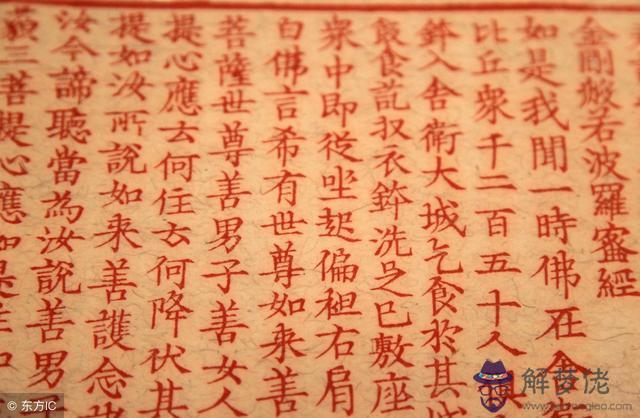 金剛般若波羅蜜經
如是我聞一時佛在舍
比丘眾千二百五十人俱
鉢入舍衛大城乞食於其
飯食訖收衣鉢洗足已敷座
眾中即從坐起偏袒右肩
白佛言希有世尊如来善
菩薩世尊善男子善女人
提心應云何住云何降伏其
提如汝所說如来善護念
汝今諦聽當為汝說善男
藐三菩提心應如是
解梦佬
© 东方IC